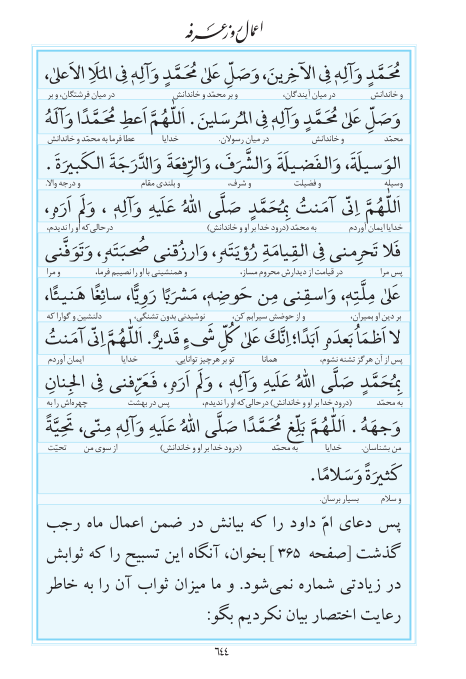 اعمال روز عرفه
مُحَمَّدٍ وَآلِهِ فِی الآخِرِینَ، وَصَلِّ عَلیٰ مُحَمَّدٍ وَآلِهِ فِی المَلَاِ الاَعلیٰ،
و خاندانش در میان آیندگان، و بر محمّد و خاندانش در میان فرشتگان، و بر
وَصَلِّ عَلیٰ مُحَمَّدٍ وَآلِهِ فِی المُرسَلینَ. اَللّٰهُمَّ اَعطِ مُحَمَّدًا وَآلَهُ
محمّد و خاندانش در میان رسولان. خدایا عطا فرما به محمّد و خاندانش
الوَسیلَةَ، وَالفَضیلَةَ وَالشَّرَفَ، وَالرِّفعَةَ وَالدَّرَجَةَ الکَبیرَةَ.
وسیله و فضیلت و شرف، و بلندی مقام و درجه والا.
اَللّٰهُمَّ اِنّی آمَنتُ بِمُحَمَّدٍ صَلَّی اللهُ عَلَیهِ وَآلِهِ، وَلَم اَرَهِ،
خدایا ایمان آوردم به محمّد (درود خدا بر او و خاندانش) درحالی‌که او را ندیدم،
فَلا تَحرِمنی فِی القِیامَةِ رُؤیَتَهِ، وَارزُقنی صُحبَتَهِ، وَتَوَفَّنی
پس مرا در قیامت از دیدارش محروم مساز، و همنشینی با او را نصیبم فرما، و مرا
عَلیٰ مِلَّتِهِ، وَاسقِنی مِن حَوضِهِ، مَشرَبًا رَوِیًّا، سائِغًا هَنیئًا،
بر دین او بمیران، و از حوضش سیرابم کن، نوشیدنی بدون تشنگی، دلنشین و گوارا که
لا اَظمَأُ بَعدَهِ اَبَدًا؛ اِنَّکَ عَلیٰ کُلِّ شَیءٍ قَدیرٌ. اَللّٰهُمَّ اِنّی آمَنتُ
پس از آن هرگز تشنه نشوم، همانا تو بر هر چیز توانایی. خدایا ایمان آوردم
بِمُحَمَّدٍ صَلَّی اللهُ عَلَیهِ وَآلِهِ، وَلَم اَرَهِ، فَعَرِّفنی فِی الجِنانِ
به محمّد (درود خدا بر او و خاندانش) درحالی‌که او را ندیدم، پس در بهشت چهره‌اش را به
وَجهَهُ. اَللّٰهُمَّ بَلِّغ مُحَمَّدًا صَلَّی اللهُ عَلَیهِ وَآلِهِ مِنّی، تَحِیَّةً
من بشناسان. خدایا به محمّد (درود خدا بر او و خاندانش) از سوی من تحیّت
کَثیرَةً وَسَلامًا.
و سلام بسیار برسان.
پس دعای امّ داود را که بیانش در ضمن اعمال ماه رجب
گذشت [صفحه ۳۶۵] بخوان، آنگاه این تسبیح را که ثوابش
در زیادتی شماره نمی‌شود. و ما میزان ثواب آن را به خاطر
رعایت اختصار بیان نکردیم بگو:
۶۴۴